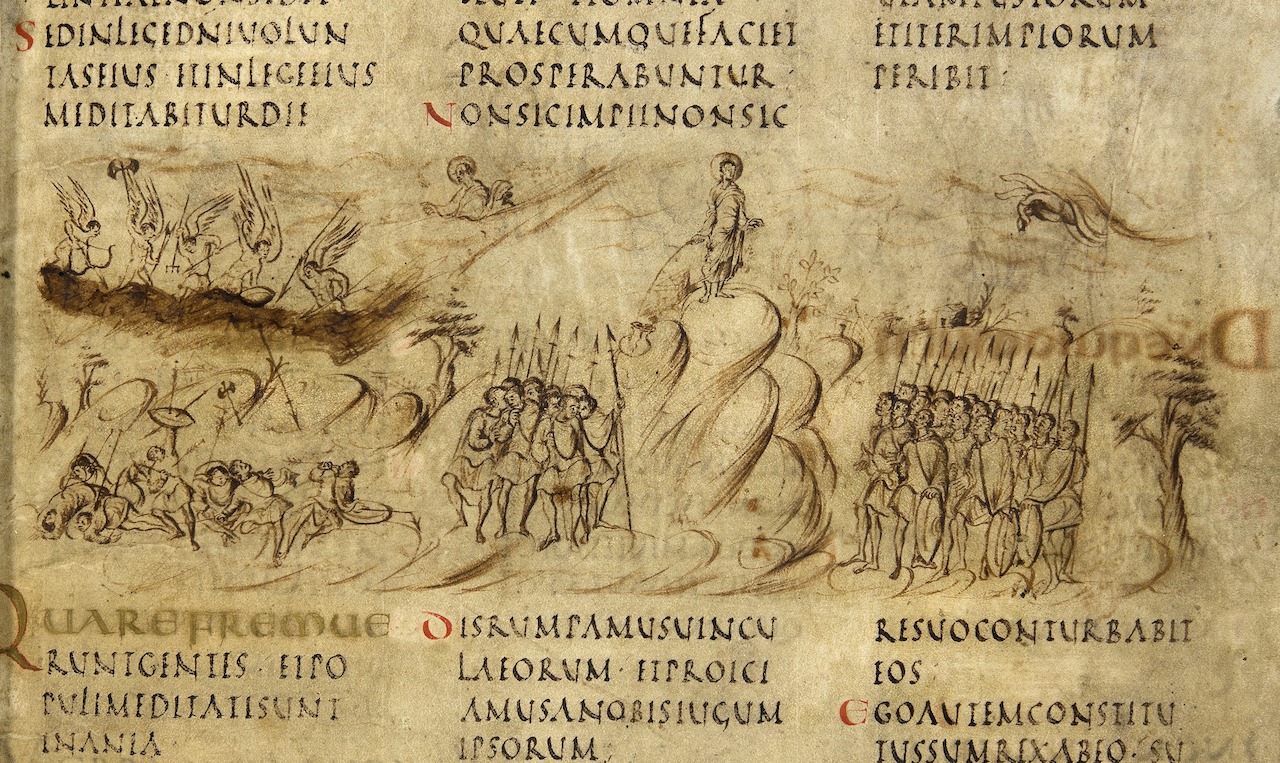 SEDINLEGEDNIVOLUN
TASEIUS · ETINLEGEEIUS
MEDITABITURDIE
QUAECUMQUEFACIET
PROSPERABUNTUR ·
NONSICIMPIINONSIC
VIAMIUSTORUM
ETITERIMPIORUM
PERIBIT ·
QUAREFREMUE
RUNTGENTES · ETPO
PULIMEDITATISUNT
INANIA
DISRUMPAMUSUINCU
LAEORUM · ETPROICI
AMUSANOBISIUGUM
IPSORUM
RESUOCONTURBABIT
EOS
EGOAUTEMCONSTITU
TUSSUMREXABEO · SU